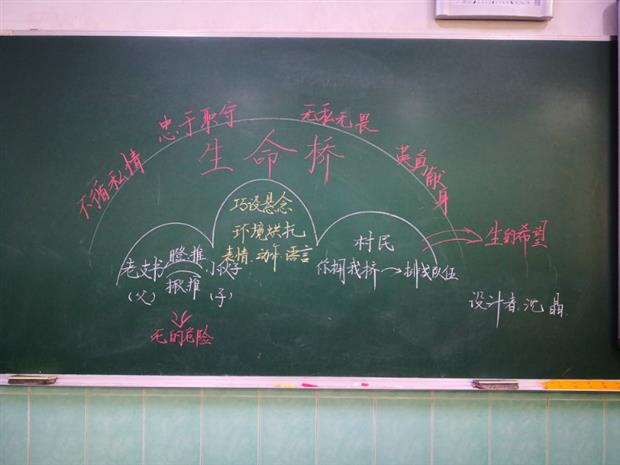 不循私情
忠于职守
无私无畏
英勇献身
生命桥
巧设悬念
环境烘托
表情、动作、语言
老支书
瞪、推
揪、推
小伙子
(父)
(子)
死的危险
村民
你拥我挤→排成队伍
生的希望
设计者:沈晶